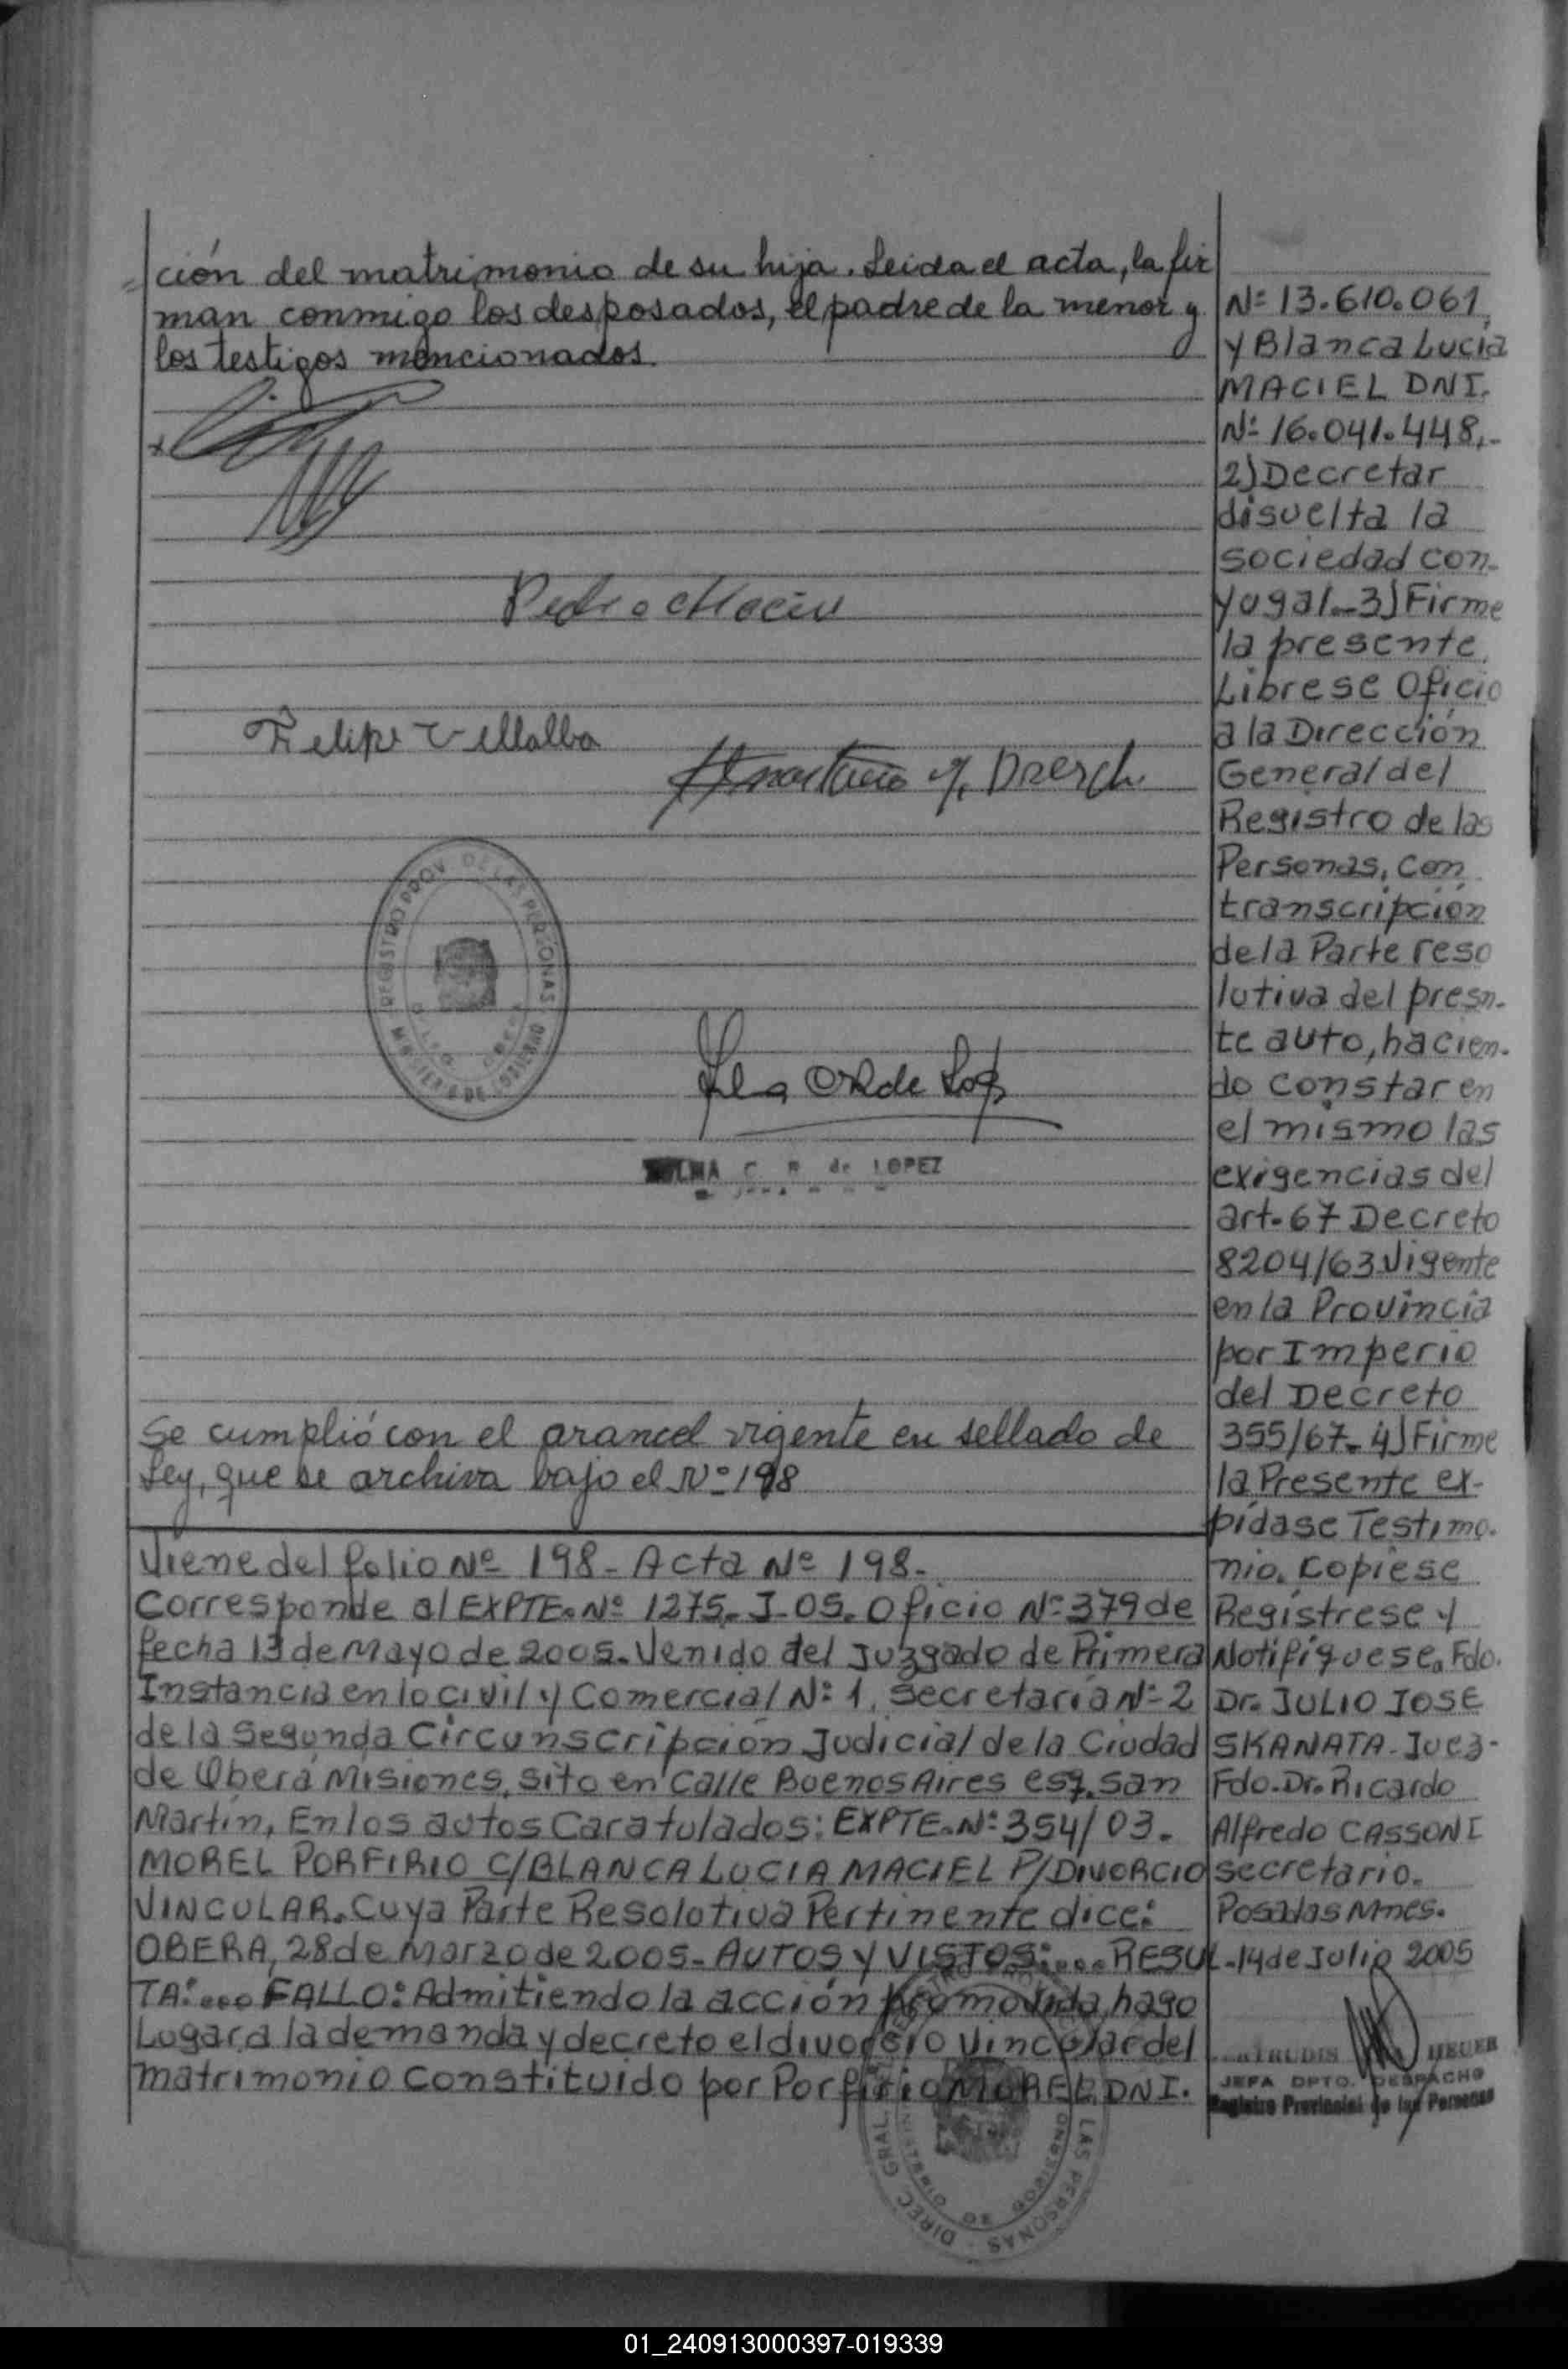 ción del matrimonio de su hija. Leida el acta, la fir
man conmigo los desposados, el padre de la menor y
los testigos mencionados.
Felipe Villalba
REGISTRO PROV. DE LAS PERSONAS
C. R. de LOPEZ
Se cumplió con el arancel vigente en sellado de
Ley, que se archiva bajo el Nº 198
Viene del folio Nº 198 - Acta Nº 198.-
Corresponde al EXPTE. Nº 1275. J-05. Oficio Nº 379 de
fecha 13 de Mayo de 2005. Venido del Juzgado de Primera
Instancia en lo civil y Comercial Nº 1, Secretaría Nº 2
de la Segunda Circunscripción Judicial de la Ciudad
de Oberá Misiones, sito en Calle Buenos Aires esq. San
Martín, En los autos Caratulados: EXPTE. Nº 354/03.
MOREL PORFIRIO C/BLANCA LUCIA MACIEL P/DIVORCIO
VINCULAR. Cuya Parte Resolutiva Pertinente dice:
OBERA, 28 de Marzo de 2005- AUTOS Y VISTOS:.... RESUL-
TA:... FALLO: Admitiendo la acción promovida, hago
Lugar a la demanda y decreto el divorcio vincular del
matrimonio constituido por Porfirio MOREL DNI.
Nº 13.610.061,
y Blanca Lucía
MACIEL DNI.
Nº 16.041.448,.-
2) Decretar
disuelta la
sociedad con-
yugal.-3) Firme
la presente,
Librese Oficio
a la Dirección
General del
Registro de las
Personas, con
transcripción
de la Parte reso
lutiva del presn-
te auto, hacien-
do constar en
el mismo las
exigencias del
art. 67 Decreto
8204/63 Vigente
en la Provincia
por Imperio
del Decreto
355/67. 4) Firme
la Presente ex-
pídase Testimo-
nio. Copiese
Regístrese y
Notifíquese. Fdo.
Dr. JULIO JOSE
SKANATA. Juez-
Fdo. Dr. Ricardo
Alfredo CASSONI
secretario.
Posadas Mnes.
14 de Julio 2005
JEFA DPTO. DESPACHO
Registro Provincial de las Personas
DIREC. GRAL. LAS PERSONAS
01_240913000397-019339